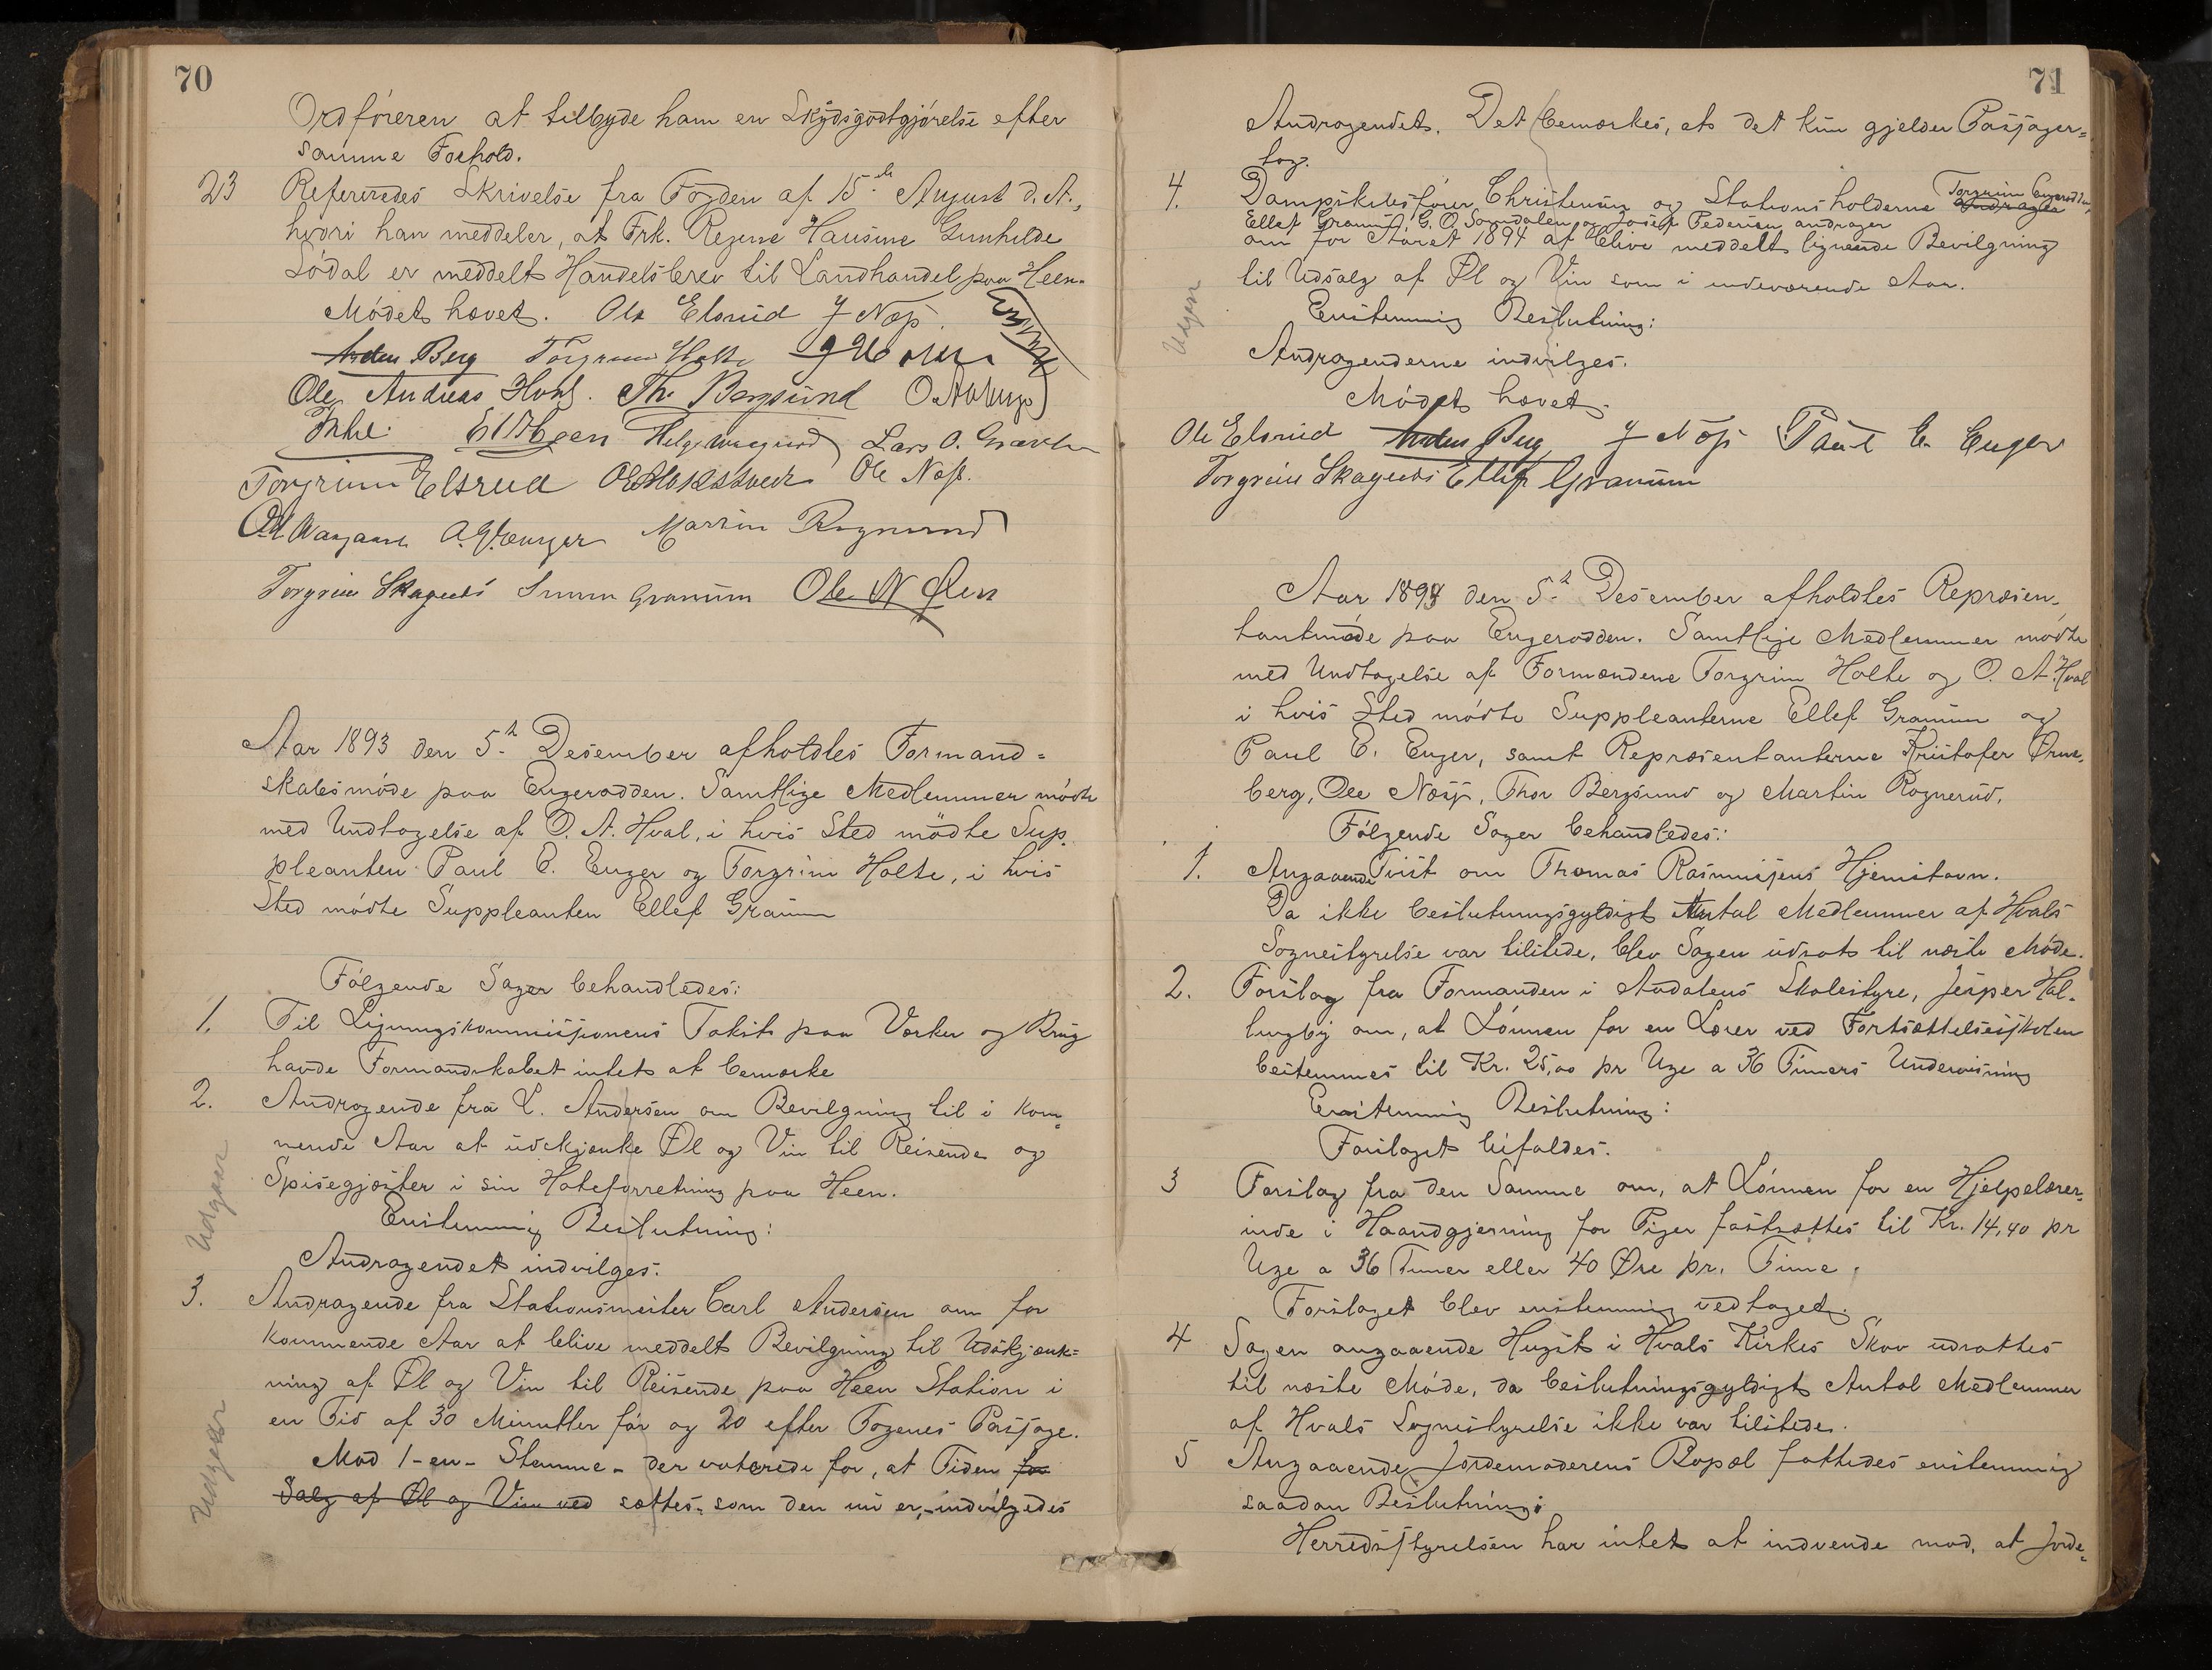 70
Ordføreren at tilbyde ham en Skydsgodtgjørelse efter
samme Forhold.
23 Refereredes Skrivelse fra Fogden af 15de August d. A.,
hvori han meddeler, at Frk. Regine Hansine Gunhilde
Sødal er meddelt Handelsbrev til Landhandel paa Heen.
Mødet hævet. Ole Elsrud J Næss.
Anders Berg Torgrim Holte
Ole Andreas Hval. Th. Bergsund
Helge Lars O. Græsli
Torgrim Elsrud Ole Næss.
Martin Rognerud
Torgrim Skagnæs Granum Ole N Øen
Aar 1893 den 5te Desember afholdtes Formand=
skabsmøde paa Engerodden. Samtlige Medlemmer mødte
med Undtagelse af O. A. Hval, i hvis Sted mødte Sup.
pleanten Paul E. Enger og Torgrim Holte, i hvis
Sted mødte Suppleanten Ellef Granum
Følgende Sager behandledes:
1. Til Ligningskommissjonens Takst paa Værker og Brug
havde Formandskabet intet at bemærke
2. Andragende fra L. Andersen om Bevilgning til i kom=
mende Aar at udskjænke Øl og Vin til Reisende og
Spisegjæster i sin Hotelforretning paa Heen.
Enstemmig Beslutning:
Andragendet indvilges.
Udgaar
3. Andragende fra Stationsmester Carl Andersen om for
kommende Aar at blive meddelt Bevilgning til Udskjænk=
ning af Øl og Vin til Reisende paa Heen Station i
en Tid af 30 Minutter før og 20 efter Togenes Passage.
Mod 1-en- Stemme- der voterede for, at Tiden for
Salg af Øl og Vin ved sættes, som den nu er, -indvilgedes
Udgaar
71
Andragendet. Det bemærkes, at det kun gjelder Passager=
tog.
4. Dampskibsfører Christensen og Stationsholderne Torgrim Engerodden, andrager
Ellef Granum, G. O. Somdalen og Josef Pedersen andrager
om for Aaret 1894 at blive meddelt lignende Bevilgning
til Udsalg af Øl og Vin som i indeværende Aar.
Enstemmig Beslutning:
Andragenderne indvilges.
Udgaar
Mødet hævet.
Ole Elsrud Anders Berg J Næss Paul E. Enger
Torgrim Skagnæs Ellef Granum
Aar 1893 den 5te Desember afholdtes Repræsen=
tantmøde paa Engerodden. Samtlige Medlemmer mødte
med Undtagelse af Formændene Torgrim Holte og O. A. Hval
i hvis Sted mødte Suppleanterne Ellef Granum og
Paul E. Enger, samt Repræsentanterne Kristofer Ørne=
berg, Ole Næss, Thor Bergsund og Martin Rognerud.
Følgende Sager behandledes:
1. Angaaende Tvist om Thomas Rasmussens Hjemstavn.
Da ikke beslutningsgyldigt Antal Medlemmer af Hvals
Sognestyrelse var tilstede, blev Sagen udsat til næste Møde.
2. Forslag fra Formanden i Aadalens Skolestyre, Jesper Hal=
lingby om, at Lønnen for en Lærer ved Fortsættelsesskolen
bestemmes til Kr. 25,00 pr Uge a 36 Timers Undervisning
Enstemmig Beslutning:
Forslaget bifaldes.
3 Forslag fra den Samme om, at Lønnen for en Hjelpelærer=
inde i Haandgjerning for Piger fastsættes til Kr. 14,40 pr
Uge a 36 Timer eller 40 Øre pr. Time.
Forslaget blev enstemmig vedtaget.
4 Sagen angaaende Hugst i Hvals Kirkes Skov udsattes
til næste Møde, da beslutningsgyldigt Antal Medlemmer
af Hvals Sognestyrelse ikke var tilstede.
5 Angaaende Jordemoderens Bopæl fattedes enstemmig
saadan Beslutning:
Herredsstyrelsen har intet at indvende mod, at Jorde=